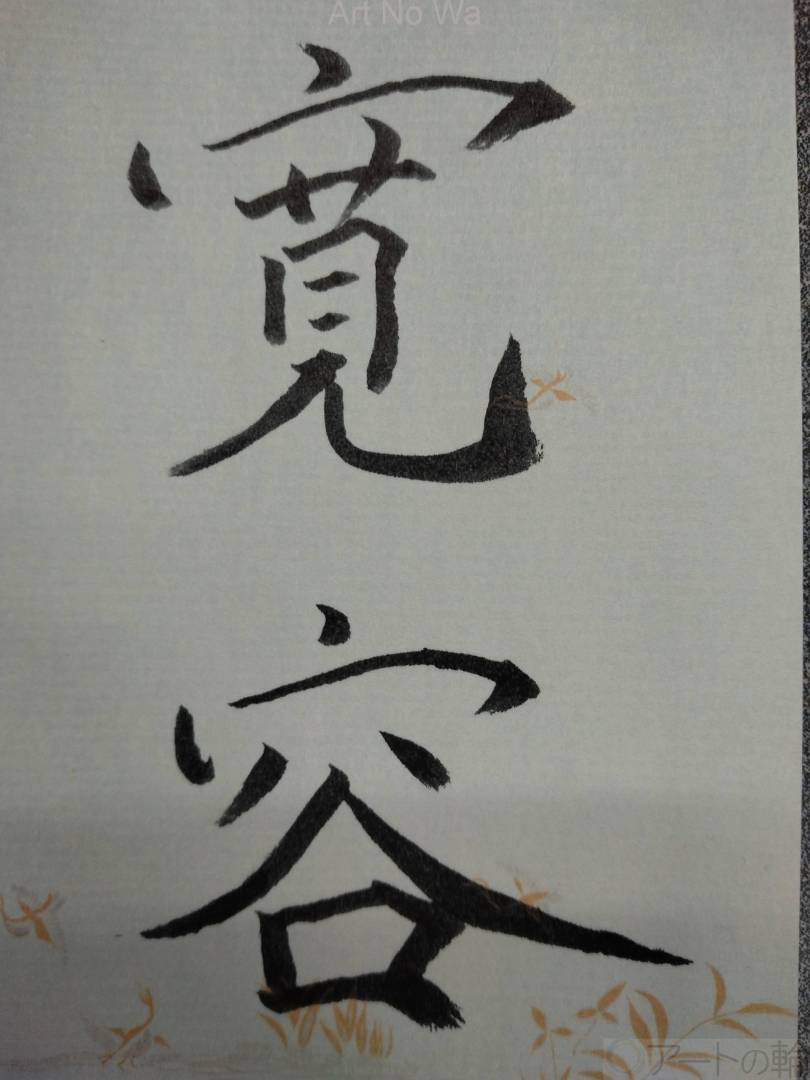 Art No Wa
寛
容
アートの輪